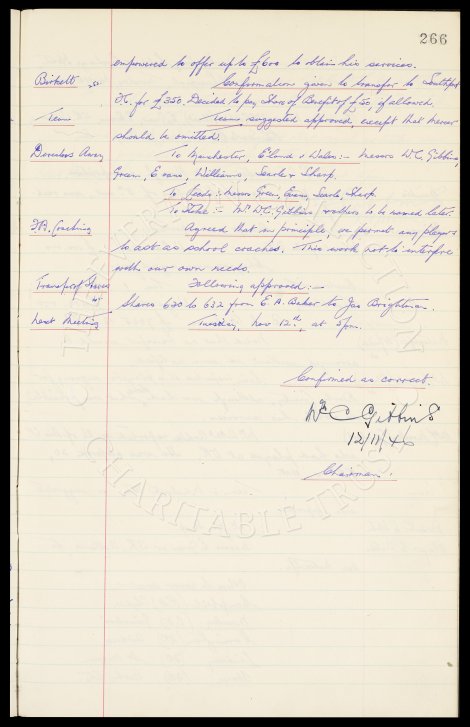 266
empowered to offer up to £600 to obtain his services.
Birkett Confirmation given to transfer to Southport
for £350. Decided to pay Share of Benefit of £50, if allowed.
Team Team suggested approved, except that Mercer
should be omitted.
Directors Away To Manchester, E'land & Wales:- Messrs W.C. Gibbins,
Green, Evans, Williams, Searle & Sharp.
To Leeds:- Messrs Green, Evans, Searle, Sharp.
To Stoke:- Mr. W.C. Gibbins, & others to be named later.
F.A. Coaching Agreed that in principle, we permit any players
to act as school coaches. This work not to interfere
with our own needs.
Transfer of Shares Following approved:-
Shares 630 to 632 from E. A. Baker to Jas Brightman.
Next Meeting Tuesday, Nov 12th, at 5pm.
Confirmed as correct.
W C Gibbins
12/11/46
Chairman.
CHARITABLE TRUST